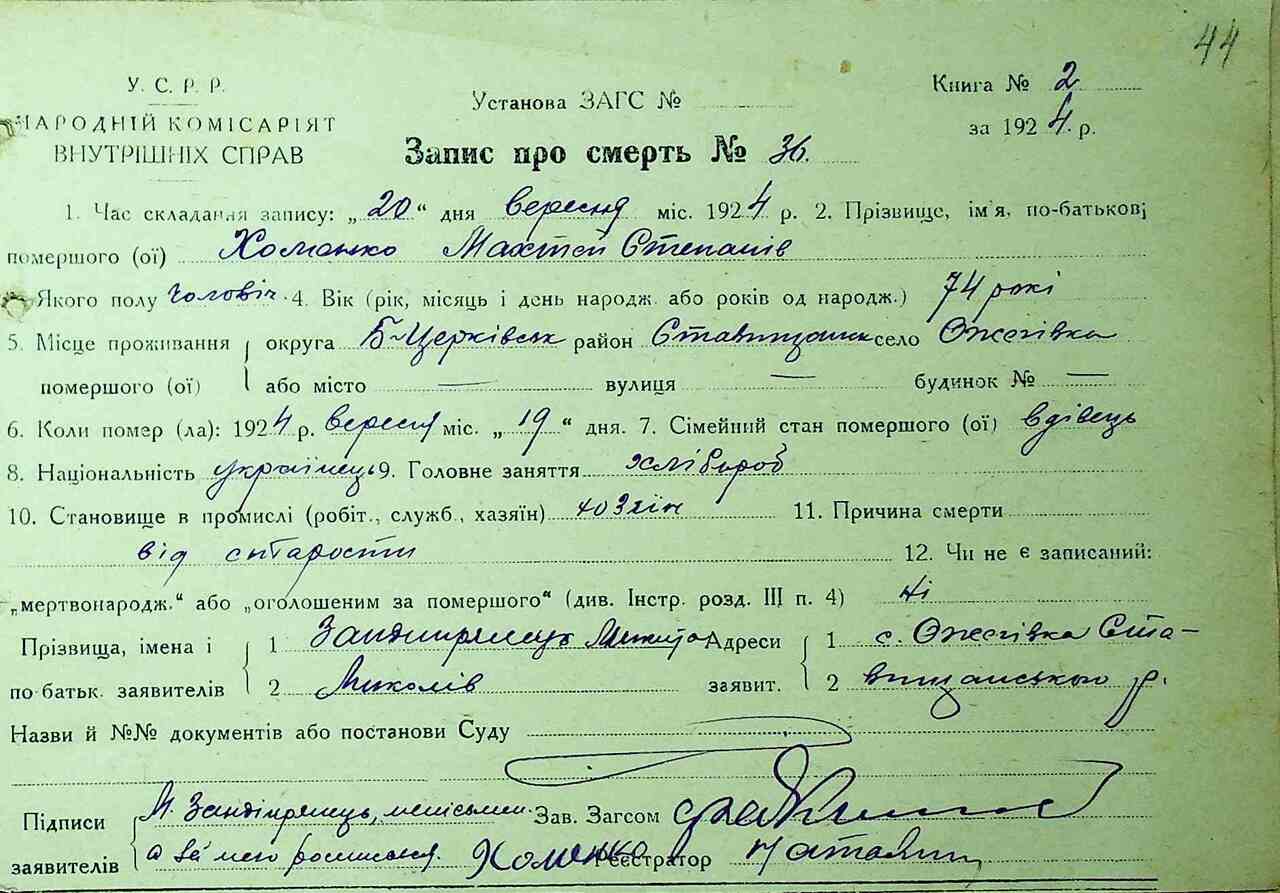 44
У. С. Р. Р.
НАРОДНІЙ КОМІСАРІЯТ
ВНУТРІШНІХ СПРАВ
Установа ЗАГС №
Книга № 2
за 1924 р.
Запис про смерть № 36.
1. Час складання запису: „20“ дня вересня міс. 1924 р. 2. Прізвище, ім'я, по-батькові
помершого (ої) Хоменко Махтей Степанів
Якого полу чоловіч. 4. Вік (рік, місяць і день народж. або років од народж.) 74 рокі
5. Місце проживання округа Б-Церківськ район Ставищанськ село Ожегівка
помершого (ої) або місто — вулиця — будинок № —
6. Коли помер (ла): 1924 р. вересня міс. „19“ дня. 7. Сімейний стан помершого (ої) вдівець
8. Національність українець 9. Головне заняття хлібороб
10. Становище в промислі (робіт., служб., хазяїн) хозяїн 11. Причина смерти
від старости 12. Чи не є записаний:
„мертвонародж.“ або „оголошеним за помершого“ (див. Інстр. розд. III п. 4) ні
Прізвища, імена і 1 Адреси 1 с. Ожегівка Ста-
по-батьк. заявителів 2 Миколів заявит. 2 вищанського р.
Назви й №№ документів або постанови Суду
Підписи М. Зав. Загсом
заявителів а за него росписався. Хоменко Реєстратор